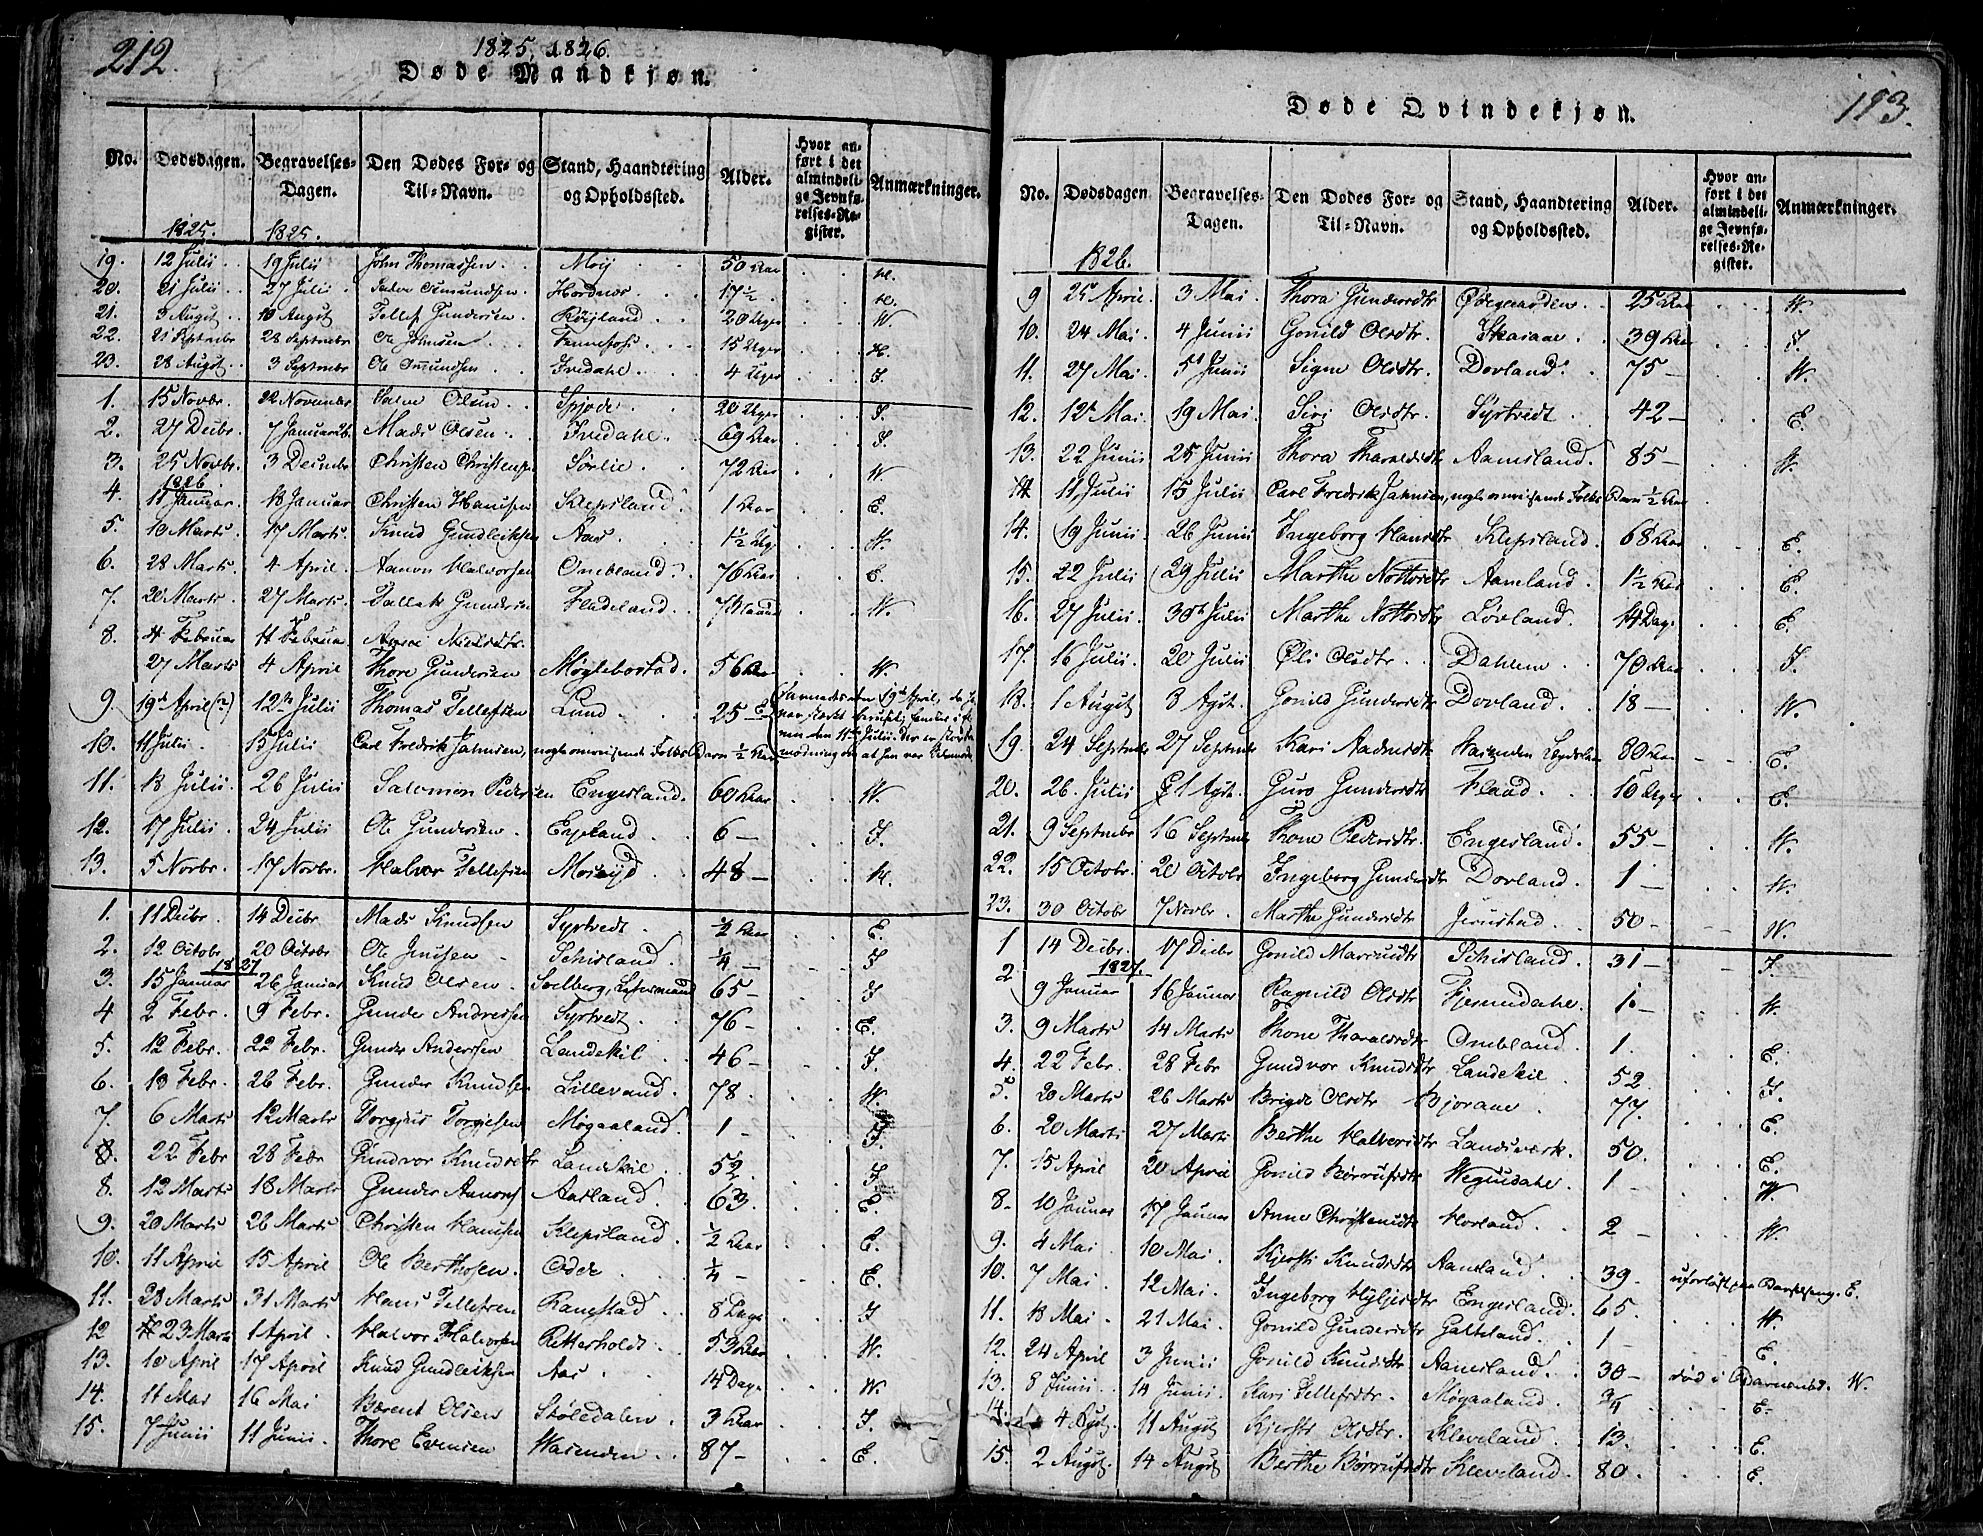 212.
1825, 1826.
Døde Mandkjøn.
No. Dødsdagen. Begravelses-Dagen. Den Dødes For- og Til-Navn. Stand, Haandtering og Opholdssted. Alder. Hvor anført i det almindelige Jevnførelses-Register. Anmærkninger.
1825. 1825.
19. 12 Julii 19 Julii John Thomassen Moÿ 50 Aar H.
20. 21 Julii 27 Julii Salve Omundsen 17½ H.
21. 5 Augst 10 Augst Tellef Gundersen Røiland 20 Uger W.
22. 21 Septembr 28 Septembr Ole Johnsen 15 Uger H.
23. 28 Augst 3 Septembr Ole Omundsen Ivedahl 4 Uger I.
1. 15 Novbr. 22 November Salve Olsen Spjode 20 Uger I.
2. 27 Decbr. 7 Januar 26. Mads Olsen Ivedahl. 69 Aar I.
3. 25 Novbr. 3 Decembr Christen Christensen Sørlie 72 Aar W.
1826
4. 11 Januar. 18 Januar Christen Hansen Klepsland. 1 Aar E.
5. 10 Marts 17 Marts. Knud Gundleiksen Aas 1½ Ug. H.
6. 28 Marts. 4 April. Aanon Halvorsen Ombland. 76 Aar E.
7. 20 Marts. 27 Marts. Tallak Gundersen Fladeland. W.
8. 4 Februar 11 Februar
27 Marts 4 April Thore Gundersen Møglebostad. 56 Aar W.
9. 19de April (?) 12te Julii Thomas Tellefsen Lund 25
10. 11 Julii. 15 Julii Carl Fredrik Jahnsen, nogle omreisende Folks Barn ½ Aar
11. 18 Julii. 26 Julii Salomon Pedersen Engesland. 60 Aar W.
12. 17 Julii. 24 Julii Ole Gundersen. Espeland. 6 — I.
13. 5 Novbr. 17 Novbr. Halvor Tellefsen 48 — H.
1. 11 Decbr. 14 Decbr. Mads Knudsen Syrtvedt ½ Aar E.
2. 12 Octobr 20 Octobr Ole Jensen Schisland. ¼ — I
1827
3. 15 Januar 26 Januar Knud Olsen. Solberg, 65 — I
4 2 Febr. 9 Febr. Gunder Andersen Syrtvedt. 76 — E.
5. 12 Febr. 22 Febr. Gunder Anderssen Landeskil 46 — I.
6. 13 Febr. 26 Febr. Gunder Knudsen Lillesand. 78. W.
7. 6 Marts 12 Marts Torgius Torgiesen Møgaaland. 1 — I.
8. 22 Febr 28 Febr Gundvor Knudsdtr Landeskil. 52. I
8. 12 Marts 18 Marts Gunder Aanons Aasland 63. E.
9. 20 Marts 26 Marts Christen Hansen Klepsland. ½ Aar E.
10. 11 April 15 April Ole Berthosen. Odde ¼ — E.
11. 23 Marts 31 Marts Hans Tellefsen Ranestad. 8 Dage I
12 23 Marts 1 April. Halvor Halvorsen Retterholdt. 53 Aar W.
13. 10 April 17 April Knud Gundleiksen Aas 14 Dage W.
14. 11 Mai 16 Mai Bærent Olsen Støledalen. 3 Aar I
15. 7 Junii 11 Junii. Thore Evensen Wasenden 87 — E.
113.
Døde Qvindekjøn.
No. Dødsdagen Begravelses-Dagen. Den Dødes For- og Til-Navn. Stand, Haandtering og Opholdssted. Alder. Hvor anført i det almindelige Jevnførelses-Register. Anmærkninger.
1826.
9 25 April. 3 Mai. Thora Gundersdtr Øvegaarden. 25 Aar W.
10. 24 Mai 4 Junii Gonild Olsdtr. Skaiaae 39 Aar I.
11. 27 Mai 5t Junii Signe Olsdtr. Dovland. 75 — W.
12. 12t Mai 19 Mai Siri Olsdtr. Syrtvedt 42 — E.
13. 22 Junii 25 Junii Thora Tharaldsdtr Aamsland. 85 — W.
14 11 Julii 15 Julii Carl Fredrik Jahnsen, nogle omreisende Folks Barn ½ Aar
14. 19 Junii 26 Junii Ingeborg Hansdtr Klepsland. 68 Aar E.
15. 22 Julii 29 Julii Marthe Nottosdtr Aamland. 1½ Aar E.
16. 27 Julii 30t Julii Marthe Nottosdtr Løvland. 14 Dage E.
17. 16 Julii. 20 Julii Øli Olsdtr. Dahlen 70 Aar I.
18. 1 Augst 8 Agst. Gonild Gundersdtr Dovland. 18 — W.
19. 24 Septembr 27 Septembr Kari Aadnesdtr Wasenden 80 Aar E.
20. 26. Julii 1 Agst. Guro Gundersdtr Flaad. 10 Uger E.
21. 9 Septembr 16 Septembr Thone Pedersdtr. Engesland. 55 — W.
22. 15 Octobr. 20 Octobr Ingeborg Gundersdtr Dovland. 1 — W.
23. 30 Octobr 7 Novbr. Marthe Gundersdtr Jerustad 50 — W.
1 14 Decbr. 17 Decbr Gonild Schisland. 31 — I.
1827.
2 9 Januar 16 Januar Ragnild Olsdtr Fjermedahl. 1. — W.
3. 9 Marts 14 Marts Thone Tharaldsdtr Ombland. 1. E.
4. 22 Febr. 28 Febr Gundvor Knudsdtr Landeskil 52. I.
5. 20 Marts 26 Marts Brigde Olsdtr Bjoraae 77. E.
6. 20 Marts 27 Marts Berthe Halvorsdtr Landsverk. 50. E.
7. 15 April 20 April Gonild Børrufsdtr Wegusdahl. 1 — W
8. 10 Januar 17 Januar Anne Christensdtr Hovland. 2 — W.
9. 4 Mai 10 Mai Kjersti Knudsdtr Aamland. 39. uforløst paa Barselseng. E.
10. 7 Mai 12 Mai. Ingeborg Engesland 65. W.
11. 18 Mai. 21 Mai. Gonild Gundersdtr Galteland. 1 — E.
12. 24 April 3 Junii Gonild Knudsdtr Aamesland. 30 — død i Barnenød. W.
13. 8 Junii 14 Junii. Kari Tellefsdtr. Møgaaland. ¾ E.
14. 4 Agst. 11 Augst Kjersti Olsdtr. Kleveland. 13. E.
15. 2 Augst. 14 Augst Berthe Børrufsdtr Kleveland. 80. E.